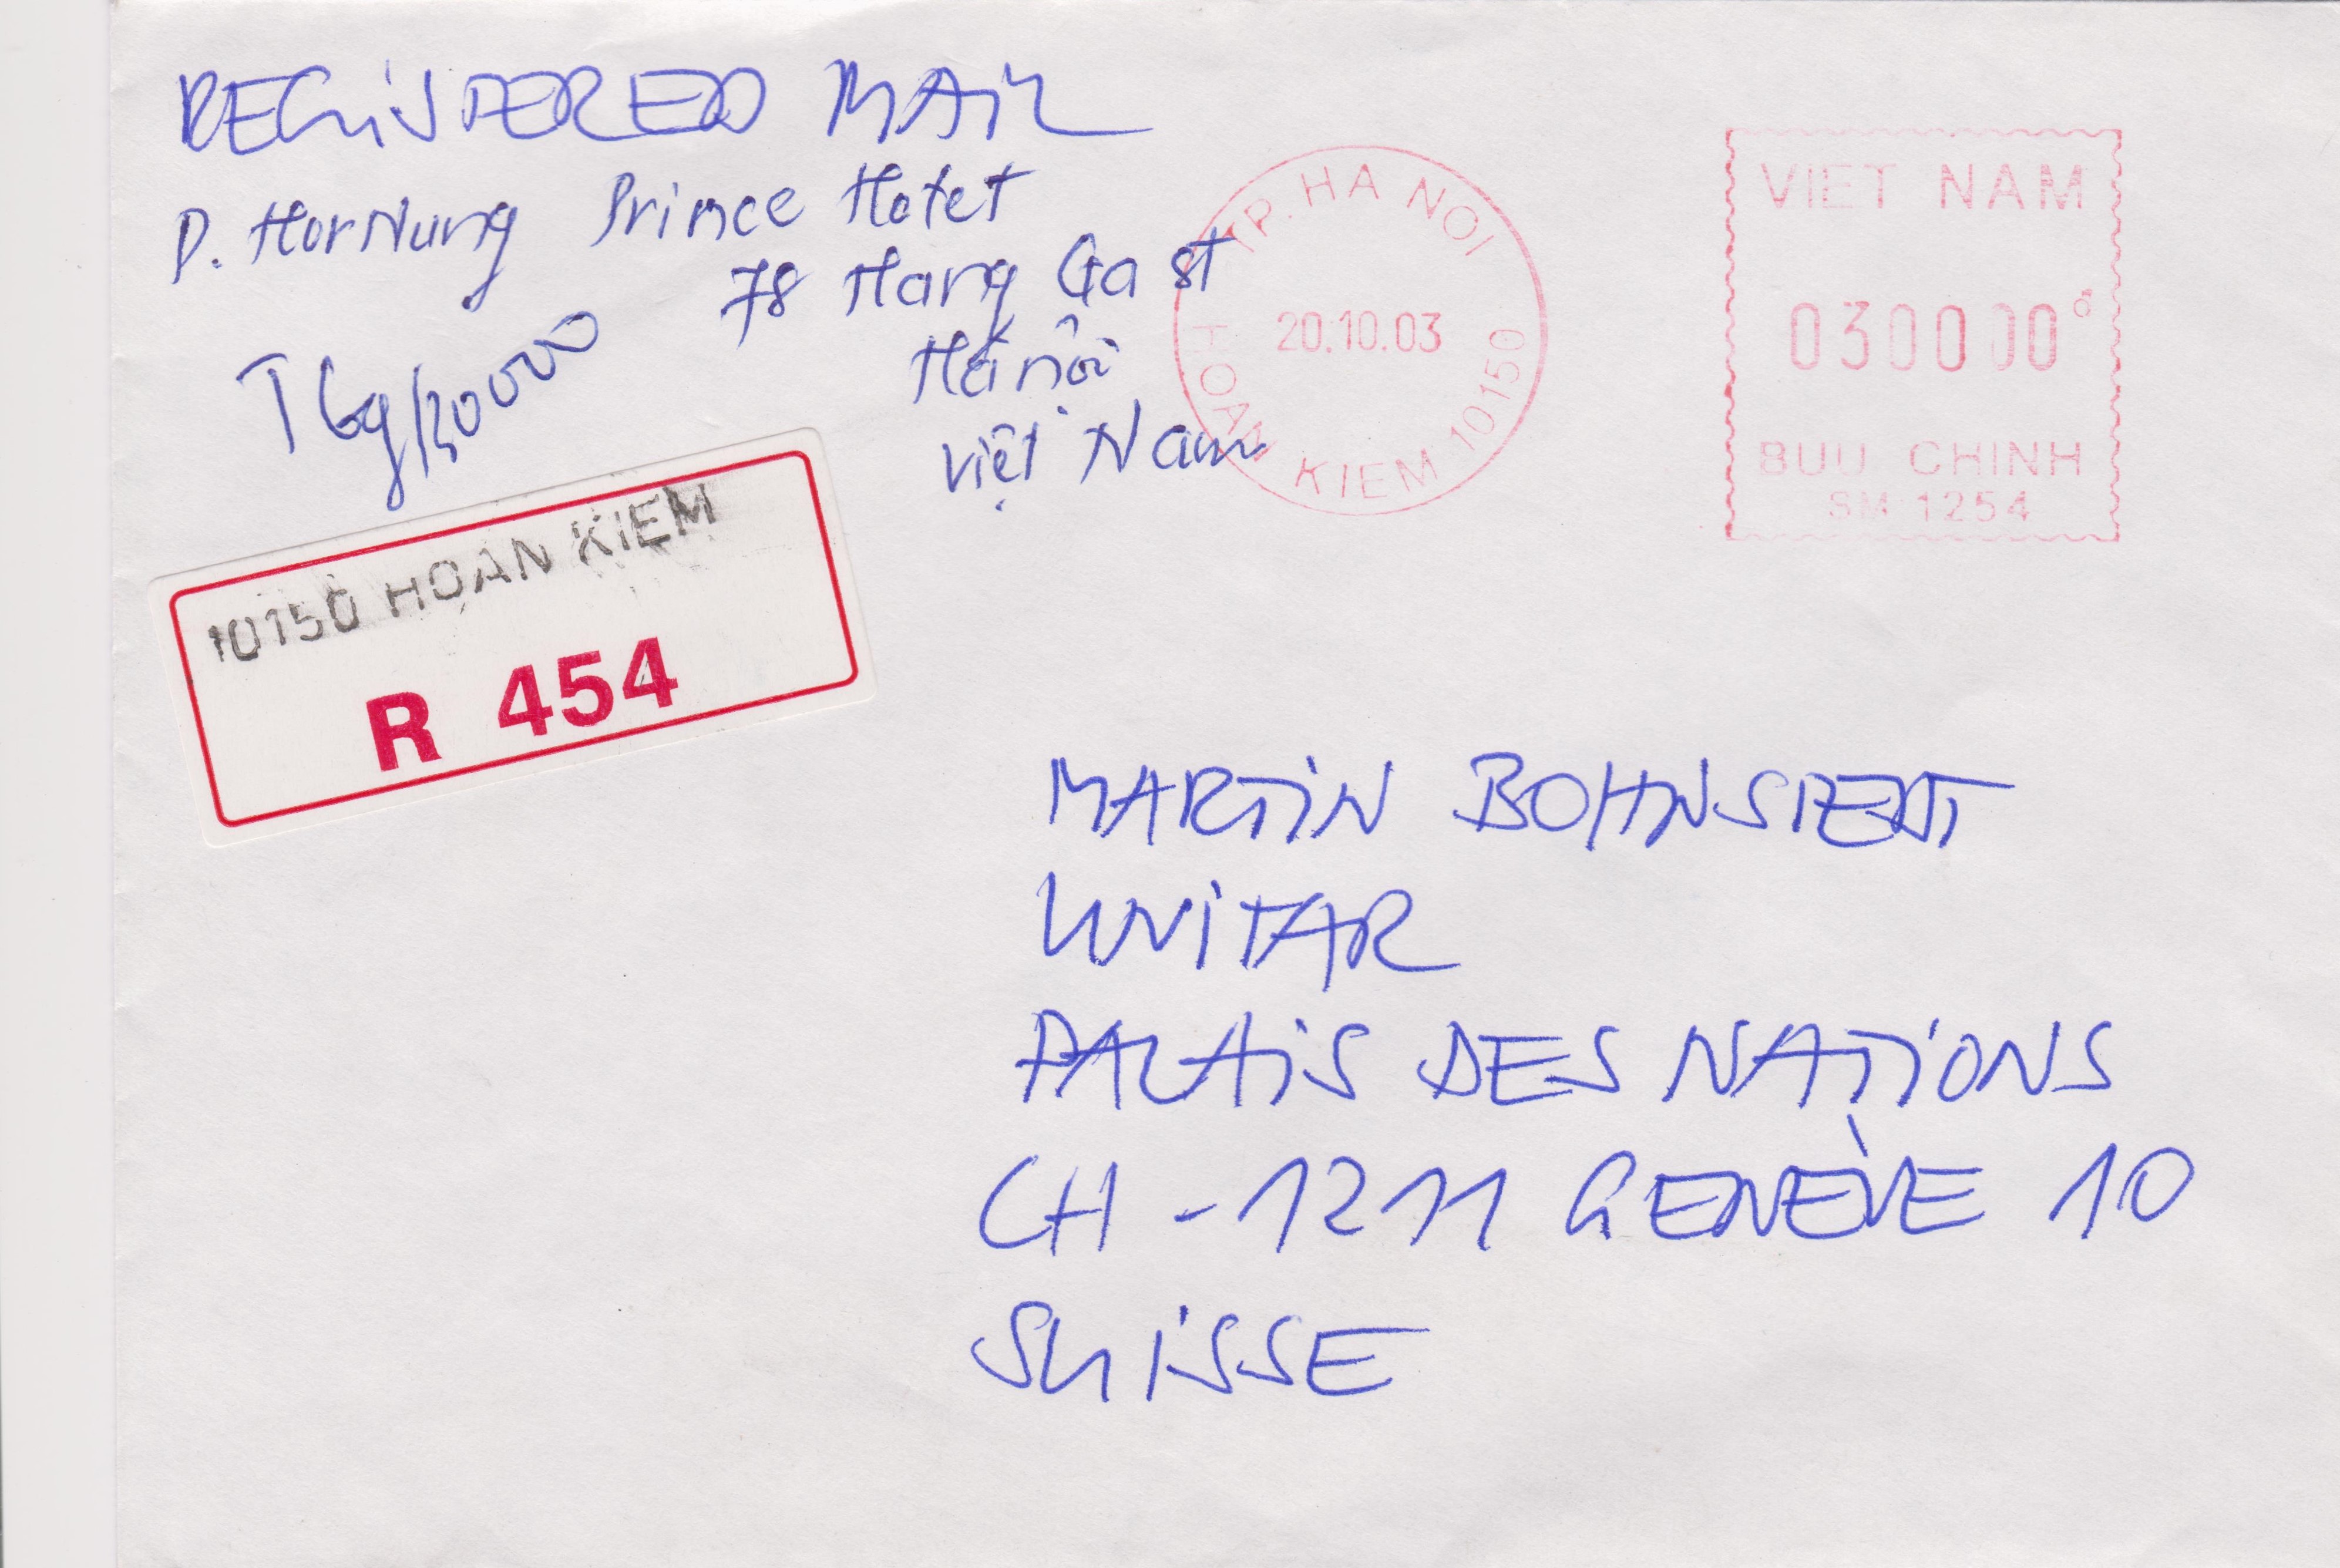 REGISTERED MAIL
D. HorNung Prince Hotel
78 Hang Ga st
Hà nội
Việt Nam
TP. HA NOI
20.10.03
HOAN KIEM 10150
VIET NAM
030000đ
BUU CHINH
SM 1254
10150 HOAN KIEM
R 454
MARTIN BOHNSTEDT
UNITAR
PALAIS DES NATIONS
CH-1211 GENÈVE 10
SUISSE